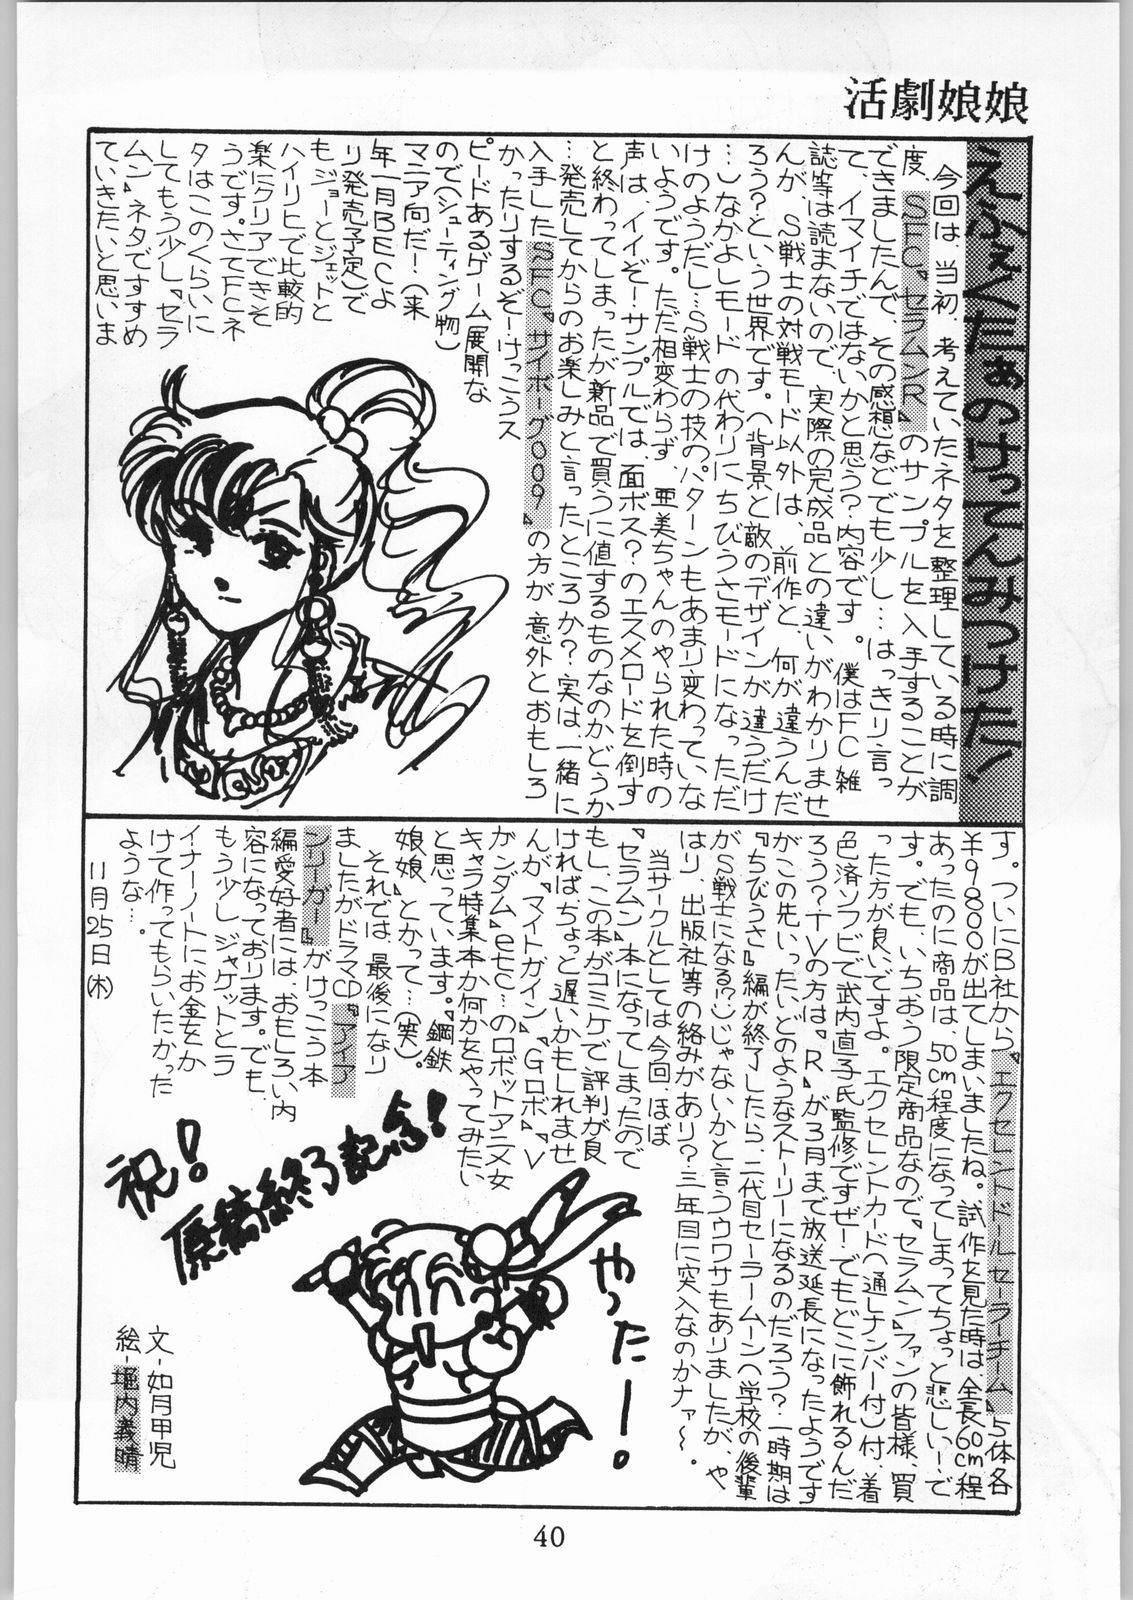 活劇娘娘
えふぇくたぁのけってんみつけた!
今回は、当初、考えていたネタを整理している時に調
度、SFC『セラムンR』のサンプルを入手することが
できましたんで、その感想などでも少し…はっきり言っ
て、イマイチではないかと思う??内容です。僕はFC雑
誌等は読まないので、実際の完成品との違いがわかりませ
んが、S戦士の対戦モード以外は、前作と、何が違うんだ
ろう?という世界です。(背景と敵のデザインが違うだけ
…)なかよしモードの代わりにちびうさモードになっただ
けのようだし…S戦士の技のパターンもあまり変わっていな
いようです。ただ相変わらず、亜美ちゃんのやられた時の
声は、イイぞ!サンプルでは、面ボス?のエスメロードを倒す
と終わってしまったが新品で買うに値するものなのかどうか
…発売してからのお楽しみと言ったところか?実は、一緒に
入手したSFC『サイボーグ009』の方が、意外とおもしろ
かったりするぞ!けっこうス
ピードあるゲーム展開な
ので(シューティング物)
マニア向だ!(来
年一月BECよ
り発売予定)で
もジョーとジェットと
ハイリヒで比較的
楽にクリアできそ
うです。さてFCネ
タはこのくらいに
してもう少し『セラ
ムン』ネタですすめ
ていきたいと思いま
す。ついにB社から『エクセレントドールセーラーチーム』5体各
¥9800が出てしまいましたね。試作を見た時は、全長60cm程
あったのに商品は、50cm程度になってしまってちょっと悲しいーで
す。でも、いちおう限定商品なので、『セラムン』ファンの皆様、買
った方が良いですよ。エクセレントカード(通しナンバー付)付、着
色済ソフビで武内直子氏監修ですぜ!でもどこに飾れるんだ
ろう?TVの方は、『R』が3月まで放送延長になったようです
がこの先いったいどのようなストーリーになるのだろう?一時期は
『ちびうさ』編が終了したら、二代目セーラームーン(学校の後輩
がS戦士になる?)じゃないかと言うウワサもありましたが、や
はり、出版社等の絡みがあり?三年目に突入なのかナァ〜。
当サークルとしては今回、ほぼ
『セラムン』本になってしまったので
もし、この本がコミケで評判が良
ければ、ちょっと遅いかもしれませ
んが、『マイトガイン』、『Gロボ』、『V
ガンダム』etc…のロボットアニメ女
キャラ特集本か何かをやってみたい
と思っています。『鋼鉄
娘娘』とかって…(笑)。
それでは、最後になり
ましたがドラマCD『アイア
ンリーガー』がけっこう本
編愛好者には、おもしろい内
容になっております。でも、
もう少しジャケットとラ
イナーノートにお金をか
けて作ってもらいたかった
ような…。
11月25日(木)
祝!
原稿終了記念!
やったー!
文-如月甲児
絵-堀内義晴
40